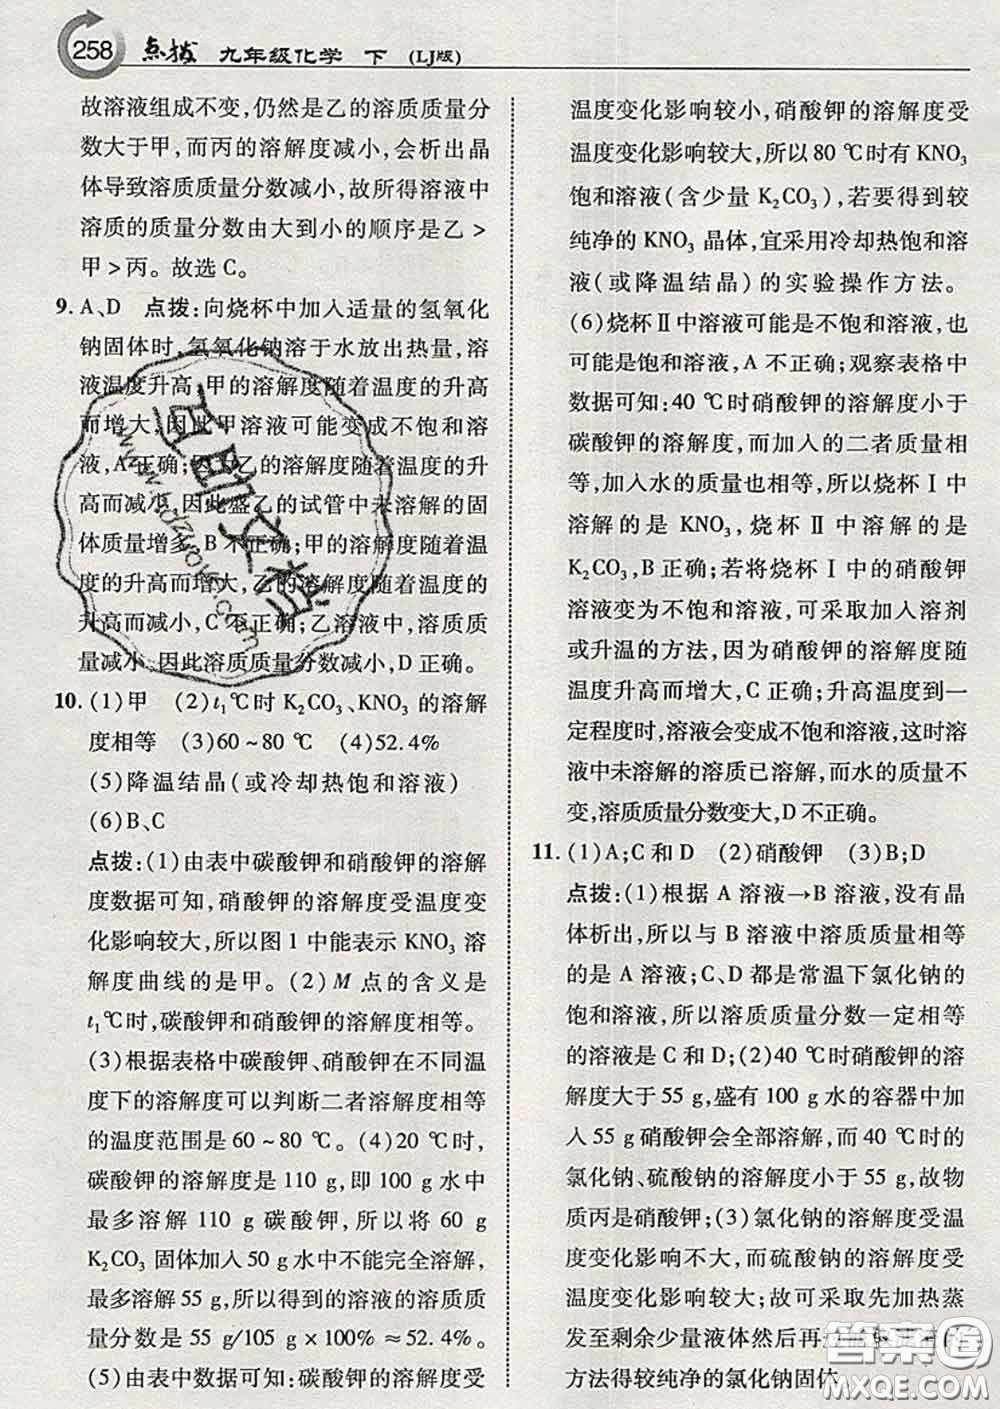 258 点拨 九年级化学 下 (LJ版)
故溶液组成不变,仍然是乙的溶质质量分
数大于甲,而丙的溶解度减小,会析出晶
体导致溶质质量分数减小,故所得溶液中
溶质的质量分数由大到小的顺序是乙>
甲>丙。故选C。
9. A、D 点拨:向烧杯中加入适量的氢氧化
钠固体时,氢氧化钠溶于水放出热量,溶
液温度升高,甲的溶解度随着温度的升高
而增大,因此甲溶液可能变成不饱和溶
液,A正确;因为乙的溶解度随着温度的升
高而减小,因此盛乙的试管中未溶解的固
体质量增多,B不正确;甲的溶解度随着温
度的升高而增大,乙的溶解度随着温度的
升高而减小,C不正确;乙溶液中,溶质质
量减小,因此溶质质量分数减小,D正确。
10. (1)甲 (2)t₁℃时K₂CO₃、KNO₃的溶解
度相等 (3)60~80 ℃ (4)52.4%
(5)降温结晶(或冷却热饱和溶液)
(6)B、C
点拨:(1)由表中碳酸钾和硝酸钾的溶解
度数据可知,硝酸钾的溶解度受温度变
化影响较大,所以图1中能表示KNO₃溶
解度曲线的是甲。(2)M点的含义是
t₁℃时,碳酸钾和硝酸钾的溶解度相等。
(3)根据表格中碳酸钾、硝酸钾在不同温
度下的溶解度可以判断二者溶解度相等
的温度范围是60~80 ℃。(4)20 ℃时,
碳酸钾的溶解度是110 g,即100 g水中
最多溶解110 g碳酸钾,所以将60 g
K₂CO₃固体加入50 g水中不能完全溶解,
最多溶解55 g,所以得到的溶液的溶质质
量分数是55 g/105 g×100%≈52.4%。
(5)由碳酸钾和硝酸钾的溶解度受
温度变化影响较小,硝酸钾的溶解度受
温度变化影响较大,所以80 ℃时有KNO₃
饱和溶液(含少量K₂CO₃),若要得到较
纯净的KNO₃晶体,宜采用冷却热饱和溶
液(或降温结晶)的实验操作方法。
(6)烧杯Ⅱ中溶液可能是不饱和溶液,也
可能是饱和溶液,A不正确;观察表格中
数据可知:40 ℃时硝酸钾的溶解度小于
碳酸钾的溶解度,而加入的二者质量相
等,加入水的质量也相等,所以烧杯Ⅰ中
溶解的是KNO₃,烧杯Ⅱ中溶解的是
K₂CO₃,B正确;若将烧杯Ⅰ中的硝酸钾
溶液变为不饱和溶液,可采取加入溶剂
或升温的方法,因为硝酸钾的溶解度随
温度升高而增大,C正确;升高温度到一
定程度时,溶液会变成不饱和溶液,这时溶
液中未溶解的溶质已溶解,而水的质量不
变,溶质质量分数变大,D不正确。
11. (1)A;C和D (2)硝酸钾 (3)B;D
点拨:(1)根据A溶液→B溶液,没有晶
体析出,所以与B溶液中溶质质量相等
的是A溶液;C、D都是常温下氯化钠的
饱和溶液,所以溶质质量分数一定相等
的溶液是C和D;(2)40 ℃时硝酸钾的溶
解度大于55 g,盛有100 g水的容器中加
入55 g硝酸钾会全部溶解,而40 ℃时的
氯化钠、硫酸钠的溶解度小于55 g,故物
质丙是硝酸钾;(3)氯化钠的溶解度受温
度变化影响不大,而硫酸钠的溶解度受
温度变化影响较大;故可采取先加热蒸
发至剩余少量液体然后再过滤
方法得较纯净的氯化钠固体。
百聊文档
答案圈
MXQE.COM